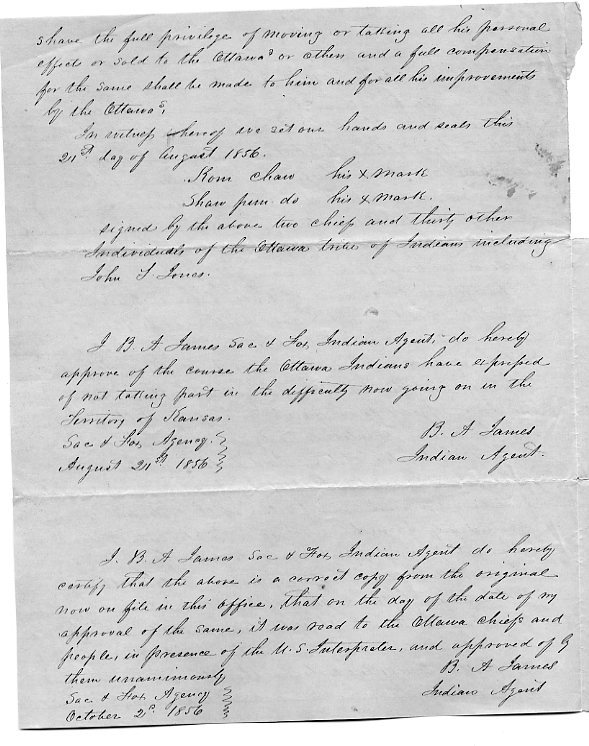 shave the full privilege of moving or taking all his personal
effects or sold to the Ottawas or others and a full compensation
for the same shall be made to him and for all his improvements
by the Ottawas,
In witness whereof we set our hands and seals this
21st day of August 1856.
Kom chaw his X mark
Shaw pun do his X mark.
signed by the above two chiefs and thirty other
Individuals of the Ottawa tribe of Indians including
John T Jones.
I B. A James Sac & Fox, Indian Agent, do hereby
approve of the course the Ottawa Indians have expressed
of not taking part in the difficulty now going on in the
Territory of Kansas.
Sac & Fox, Agency.
August 21st 1856
B. A James
Indian Agent.
I. B. A James Sac & Fox, Indian Agent do hereby
certify that the above is a correct copy from the original
now on file in this office, that on the day of the date of my
approval of the same, it was read to the Ottawa chiefs and
people, in presence of the U. S. Interpreter, and approved of by
them unanimously
Sac & Fox, Agency
October 2d 1856
B. A James
Indian Agent